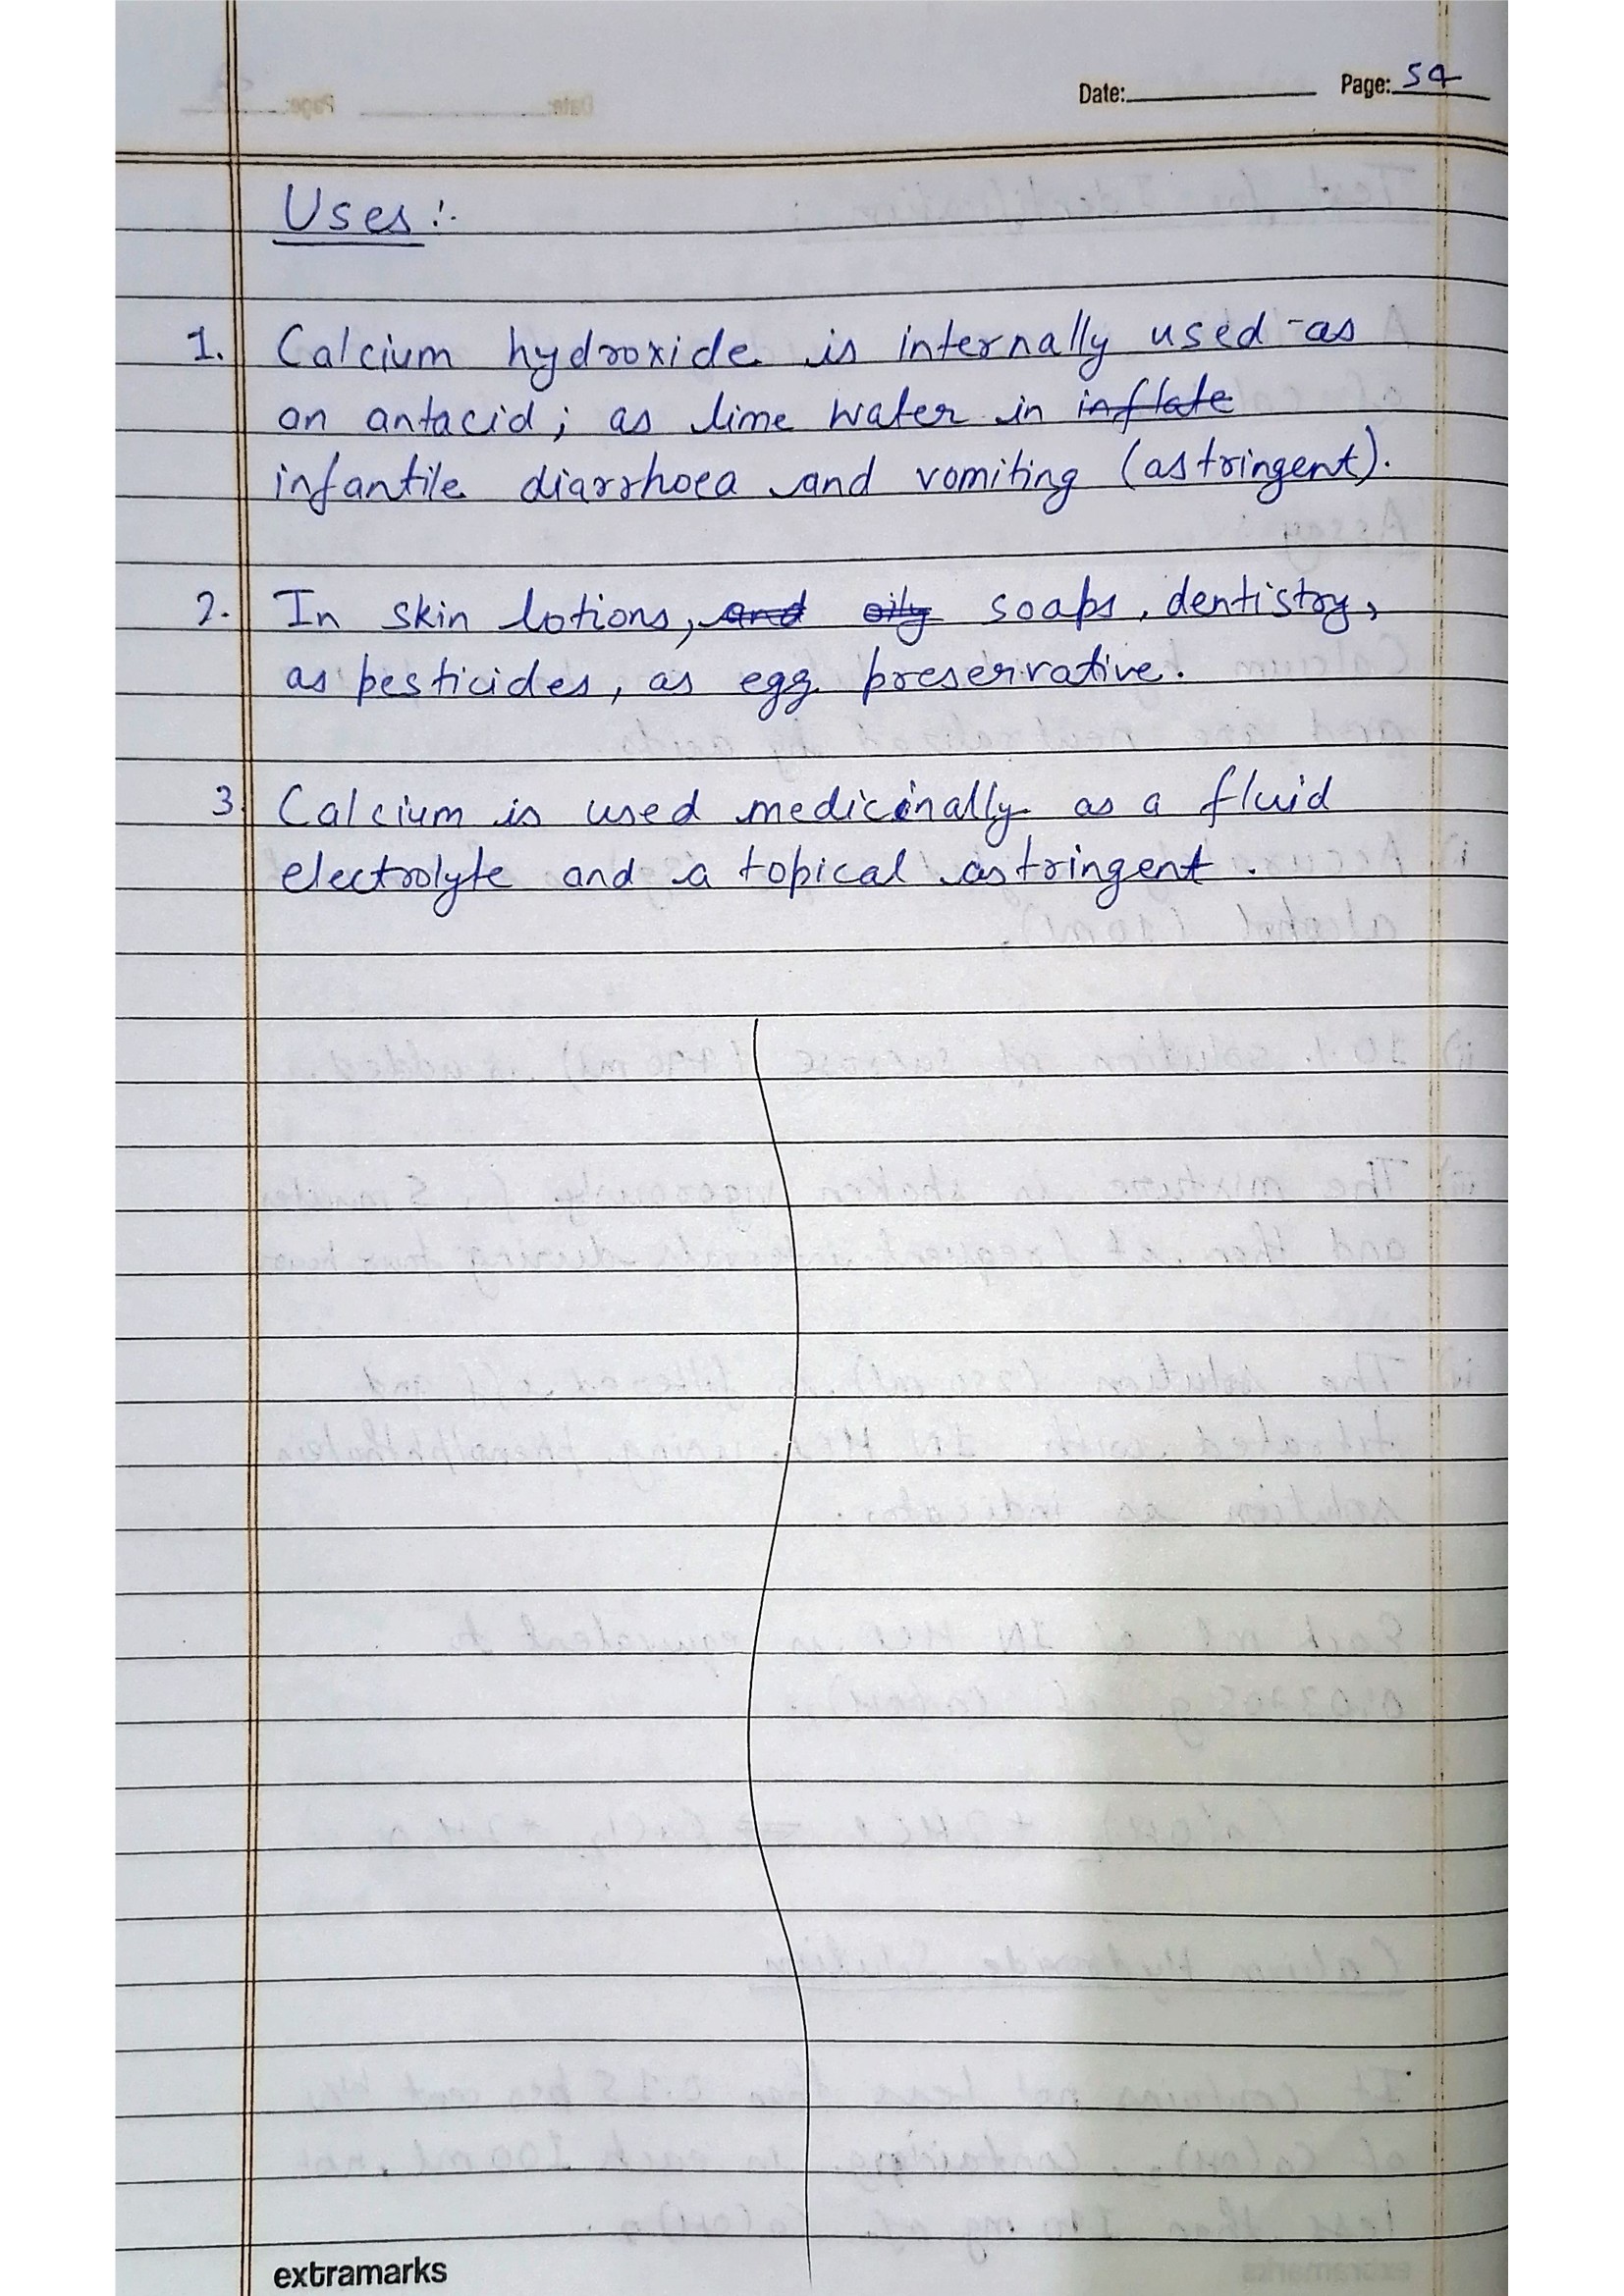 Date: Page: 54
Uses :-
1. Calcium hydroxide is internally used as
an antacid; as lime water in inflate
infantile diarrhoea and vomiting (astringent).
2. In skin lotions, and oily soaps, dentistry,
as pesticides, as egg preserivative.
3. Calcium is used medicinally as a fluid
electrolyte and a topical astringent.
extramarks